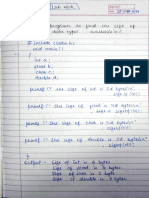 Lab Work
program to find the size of
data types available in c
# include <stdio.h>
void main()
{
int a;
float b;
char c;
double d;
printf (" The size of int is %d bytes \n",
sizeof (a));
printf (" The size of float is %d bytes \n",
printf (" The size of char is %d bytes \n",
printf (" The size of double is %d bytes \n",
}
Output - Size of int is bytes
Size of float is 4 bytes
Size of char is bytes
Size of double is 8 bytes